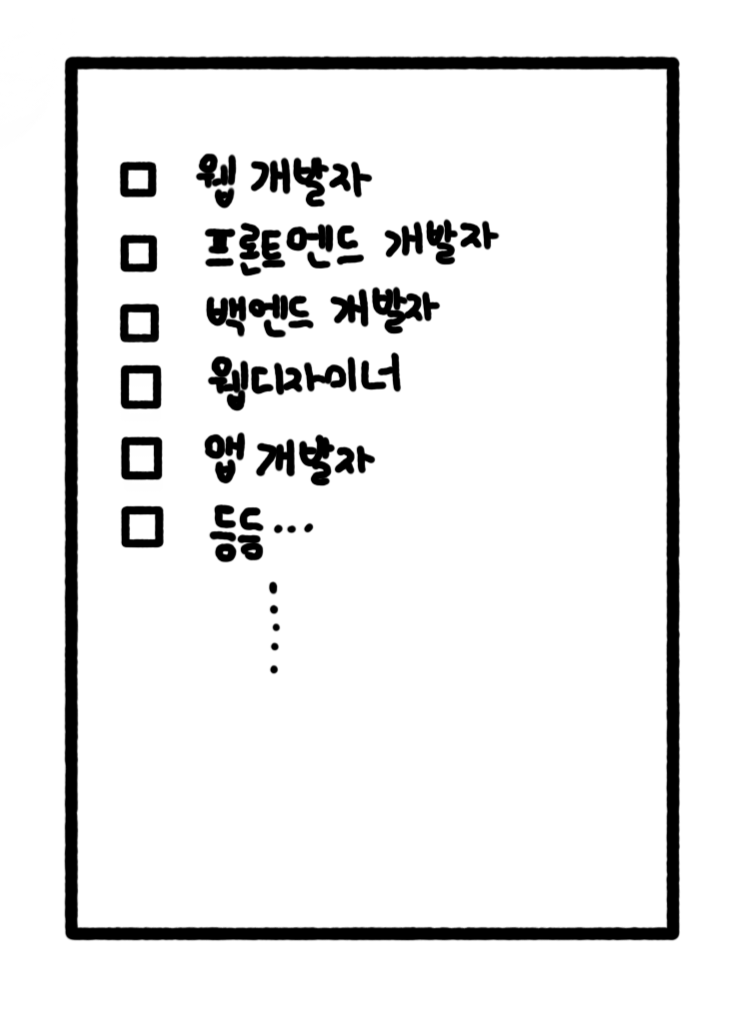 웹 개발자
프론트엔드 개발자
백엔드 개발자
웹디자이너
앱 개발자
등등...